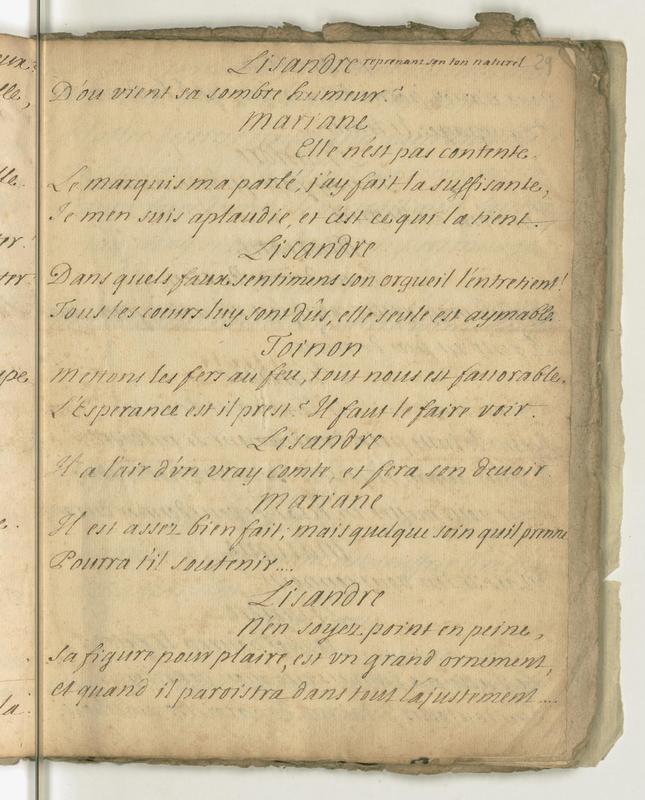 Lisandre reprenant son ton naturel 29
D'ou vient sa sombre humeur?
Mariane
Elle n'est pas contente.
Le marquis ma parlé, j'ay fait la suffisante,
Je men suis aplaudie, et c'est ce qui la tient.
Lisandre
Dans quels faux sentimens son orgueil l'entretient!
Tous les coeurs luy sont dûs, elle seule est aymable.
Toinon
Mettons les fers au feu, tout nous est fauorable.
L'Esperance est il prest? Il faut le faire voir.
Lisandre
Il a l'air d'vn vray comte, et fera son deuoir
Mariane
Il est assez bien fait; mais quelque soin quil prenne
Pourra t'il soutenir....
Lisandre
N'en soyez point en peine,
Sa figure pour plaire, est vn grand ornement,
Et quand il paroistra dans tout l'ajustement....